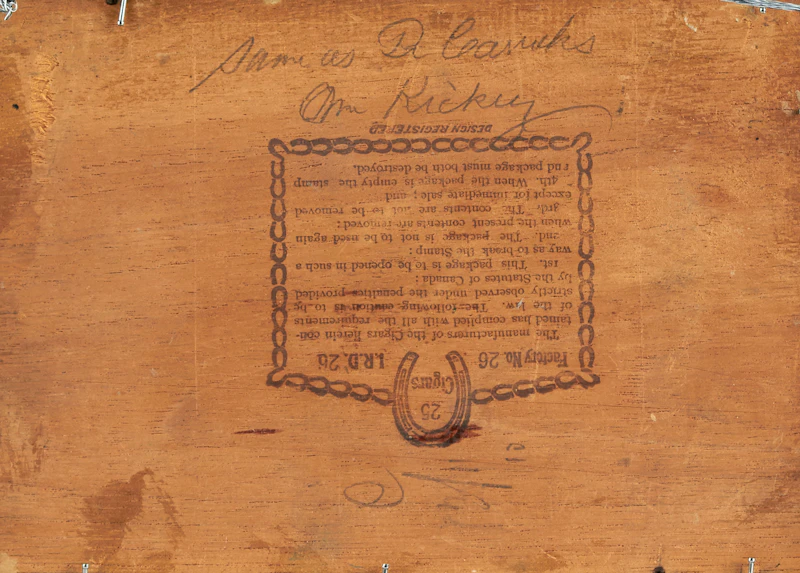 Same as Dr
Wm Rickey
25
Cigars
Factory No. 26 I.R.D. 26
The manufacturers of the Cigars Herein con-
tained has complied with all the requirements
of the law. The following caution is to be
strictly observed under the penalties provided
by the Statutes of Canada:
1st. This package is to be opened in such a
way as to break the Stamp:
2nd. The package is not to be used again
when the present contents are removed:
3rd. The contents are not to be removed
except for immediate sale; and
4th. When the package is empty the stamp
and package must both be destroyed.
DESIGN REGISTERED